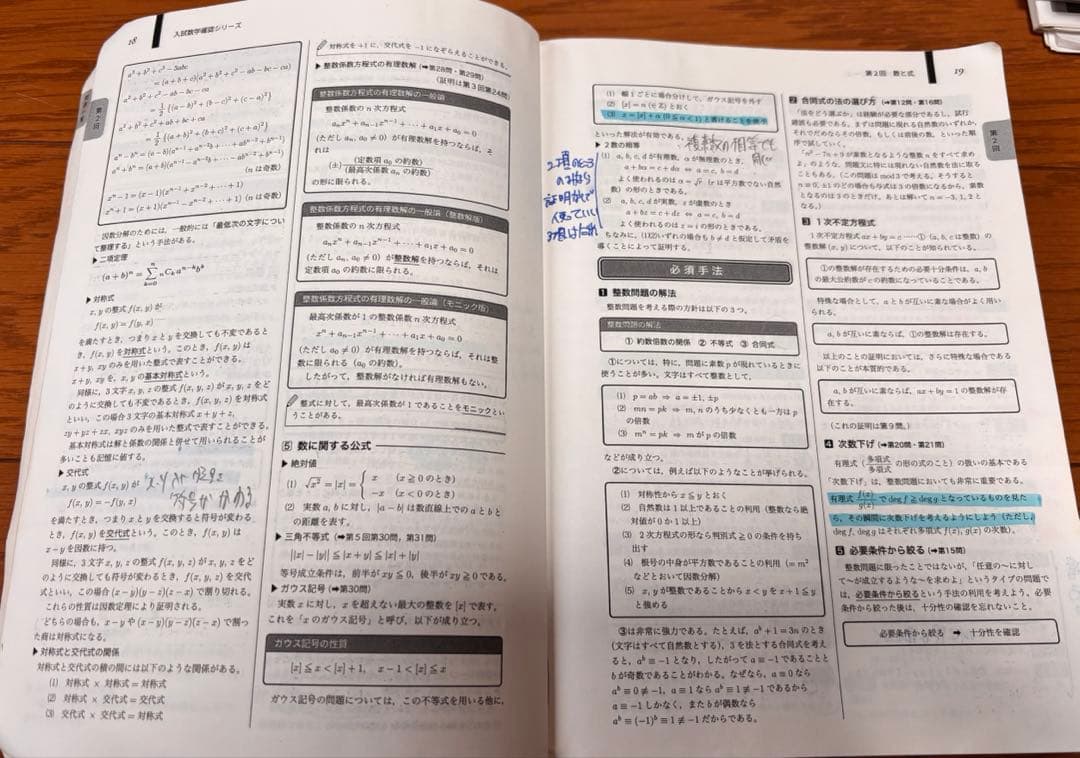 18
入試数学確認シリーズ
第2回
a³+b³+c³−3abc
=(a+b+c)(a²+b²+c²−ab−bc−ca)
a²+b²+c²−ab−bc−ca
=1/2{(a−b)²+(b−c)²+(c−a)²}
a²+b²+c²+ab+bc+ca
=1/2{(a+b)²+(b+c)²+(c+a)²}
(n は奇数)
xⁿ−1=(x−1)(xⁿ⁻¹+xⁿ⁻²+⋯+1)
xⁿ+1=(x+1)(xⁿ⁻¹−xⁿ⁻²+⋯+1) (n は奇数)
因数分解のためには,一般的には「最低次の文字につい
て整理する」という手法がある。
▶二項定理
(a+b)ⁿ=Σ[k=0,n] ₙCₖaⁿ⁻ᵏbᵏ
▶対称式
x, y の整式 f(x, y) が
f(x, y)=f(y, x)
を満たすとき,つまり x と y を交換しても不変であると
き,f(x, y) を対称式という。このとき,f(x, y) は
x+y, xy のみを用いた整式で表すことができる。
x+y, xy を,x, y の基本対称式という。
同様に,3文字 x, y, z の整式 f(x, y, z) が x, y, z をど
のように交換しても不変であるとき,f(x, y, z) を対称式
といい,この場合3文字の基本対称式 x+y+z,
xy+yz+zx, xyz のみを用いた整式で表すことができる。
基本対称式は解と係数の関係と併せて用いられることが
多いことも記憶に値する。
▶交代式
x, y の整式 f(x, y) が
f(x, y)=−f(y, x)
を満たすとき,つまり x と y を交換すると符号が変わる
とき,f(x, y) を交代式という。このとき,f(x, y) は
x−y を因数に持つ。
同様に,3文字 x, y, z の整式 f(x, y, z) が x, y, z をど
のように交換しても符号が変わるとき,f(x, y, z) を交代式
といい,この場合 (x−y)(y−z)(z−x) で割り切れる。
これらの性質は因数定理により証明される。
どちらの場合も,x−y や (x−y)(y−z)(z−x) で割っ
た商は対称式になる。
▶対称式と交代式の関係
対称式と交代式の積の間には以下のような関係がある。
(1) 対称式 × 対称式=対称式
(2) 対称式 × 交代式=交代式
(3) 交代式 × 交代式=対称式
対称式を +1 に,交代式を −1 になぞらえることができる。
▶整数係数方程式の有理数解(➡第28問・第29問)
(証明は第3回第24問)
整数係数方程式の有理数解の一般論
整数係数の n 次方程式
aₙxⁿ+aₙ₋₁xⁿ⁻¹+⋯+a₁x+a₀=0
(ただし aₙ, a₀≠0) が有理数解を持つならば,それは
(±)(定数項 a₀ の約数)/(最高次係数 aₙ の約数)
の形に限られる。
整数係数方程式の有理数解の一般論(整数解版)
整数係数の n 次方程式
aₙxⁿ+aₙ₋₁xⁿ⁻¹+⋯+a₁x+a₀=0
(ただし aₙ, a₀≠0) が整数解を持つならば,それは
定数項 a₀ の約数に限られる。
整数係数方程式の有理数解の一般論(モニック版)
最高次係数が1の整数係数 n 次方程式
xⁿ+aₙ₋₁xⁿ⁻¹+⋯+a₁x+a₀=0
(ただし a₀≠0) が有理数解を持つならば,それは整
数に限られる (a₀ の約数)。
したがって,整数解がなければ有理数解もない。
整式に対して,最高次係数が1であることをモニックとい
うことがある。
5 数に関する公式
▶絶対値
(1) √x²=|x|={ x (x≧0 のとき)
−x (x<0 のとき)
(2) 実数 a, b に対し,|a−b| は数直線上での a と b と
の距離を表す。
▶三角不等式(➡第5回第30問,第31問)
||x|−|y||≦|x+y|≦|x|+|y|
等号成立条件は,前半が xy≦0, 後半が xy≧0 である。
▶ガウス記号(➡第30問)
実数 x に対し,x を超えない最大の整数を [x] で表す。
これを「x のガウス記号」と呼び,以下が成り立つ。
ガウス記号の性質
[x]≦x<[x]+1, x−1<[x]≦x
ガウス記号の問題については,この不等式を用いる他に,
第2回 数と式
19
(1) 幅1ごとに場合分けして,ガウス記号を外す
(2) [x]=n (∈Z) とおく
(3) x=[x]+α (0≦α<1) と書けることを使う
といった解法が有効である。
▶2数の相等
複素数の相等でも
(1) a, b, c, d が有理数,α が無理数のとき,
a+bα=c+dα ⇔ a=c, b=d
よく使われるのは α=√r (r は平方数でない自然
数) の形のときである。
(2) a, b, c, d が実数,z が虚数のとき
a+bz=c+dz ⇔ a=c, b=d
よく使われるのは z=i の形のときである。
ちなみに,(1)(2)いずれの場合も b≠d と仮定して矛盾を
導くことによって証明する。
必須手法
1 整数問題の解法
整数問題を考える際の方針は以下の3つ。
整数問題の解法
① 約数倍数の関係 ② 不等式 ③ 合同式
①については,特に,問題に素数 p が現れているときに
使うことが多い。文字はすべて整数として,
(1) p=ab ⇒ a=±1, ±p
(2) mn=pk ⇒ m, n のうち少なくとも一方は p
の倍数
(3) mⁿ=pk ⇒ m が p の倍数
などが成り立つ。
②については,例えば以下のようなことが挙げられる。
(1) 対称性から x≦y とおく
(2) 自然数は1以上であることの利用 (整数なら絶
対値が0か1以上)
(3) 2次方程式の形なら判別式≧0 の条件を持ち
出す
(4) 根号の中身が平方数であることの利用 (=m²
などとおいて因数分解)
(5) x, y が整数であることから x<y を x+1≦y
と強める
③は非常に強力である。たとえば,aᵇ+1=3n のとき
(文字はすべて自然数とする),3を法とする合同式を考え
ると,aᵇ≡−1 となり,したがって a≡−1 であることと
b が奇数であることがわかる。なぜなら,a≡0 なら
aᵇ≡0≢−1, a≡1 なら aᵇ≡1≢−1 であるから
a≡−1 しかなく,また b が偶数なら
aᵇ≡(−1)ᵇ≡1≢−1 だからである。
2 合同式の法の選び方(➡第12問・第16問)
「法をどう選ぶか」は経験が必要な部分であるし,試行
錯誤も必要である。まずは問題に現れる自然数のいずれか,
それでだめならその倍数,もしくは前後の数,といった順
序で試していく。
「n²−7n+9 が素数となるような整数 n をすべて求め
よ」のような,問題文に特には現れない自然数を法に取る
こともある。(この問題は mod 3 で考える。そうすると
n≡0, ±1 のどの場合も与式は3の倍数になるから,素数
となるのは3のときだけ。あとは解いて
となる。)
3 1次不定方程式
1次不定方程式 ax+by=c⋯① (a, b, c は整数)
の整数解 (x, y) について,以下のことが知られている。
①の整数解が存在するための必要十分条件は,a, b
の最大公約数が c の約数になっていることである。
特殊な場合として,a と b が互いに素な場合がよく用い
られる。
a, b が互いに素ならば,①の整数解は存在する。
以上のことの証明においては,さらに特殊な場合である
以下のことが本質的である。
a, b が互いに素ならば,ax+by=1 の整数解が存
在する。
(これの証明は第9問。)
4 次数下げ(➡第20問・第21問)
有理式 (多項式/多項式 の形の式のこと) の扱いの基本である
「次数下げ」は,整数問題においても非常に重要である。
有理式 f(x)/g(x) で deg f≧deg g となっているものを見た
ら,その瞬間に次数下げを考えるようにしよう (ただし,
deg f, deg g はそれぞれ多項式 f(x), g(x) の次数)。
5 必要条件から絞る(➡第15問)
整数問題に限ったことではないが,「任意の〜に対し
て〜が成立するような〜を求めよ」というタイプの問題で
は,必要条件から絞るという手法の利用を考えよう。必要
条件から絞った後は,十分性の確認を忘れないこと。
必要条件から絞る ➡ 十分性を確認
第2回